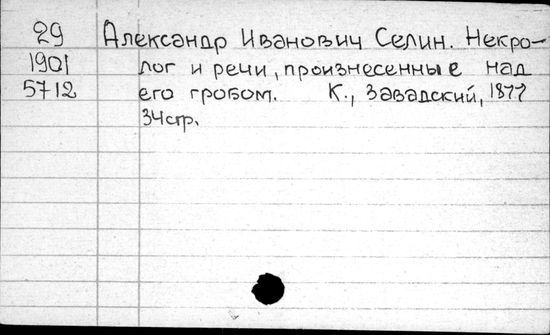 29 Александр Иванович Селин. Некро-
1901 лог и речи, произнесенные над
5712 его гробом. К., Завадский, 1877
34стр.